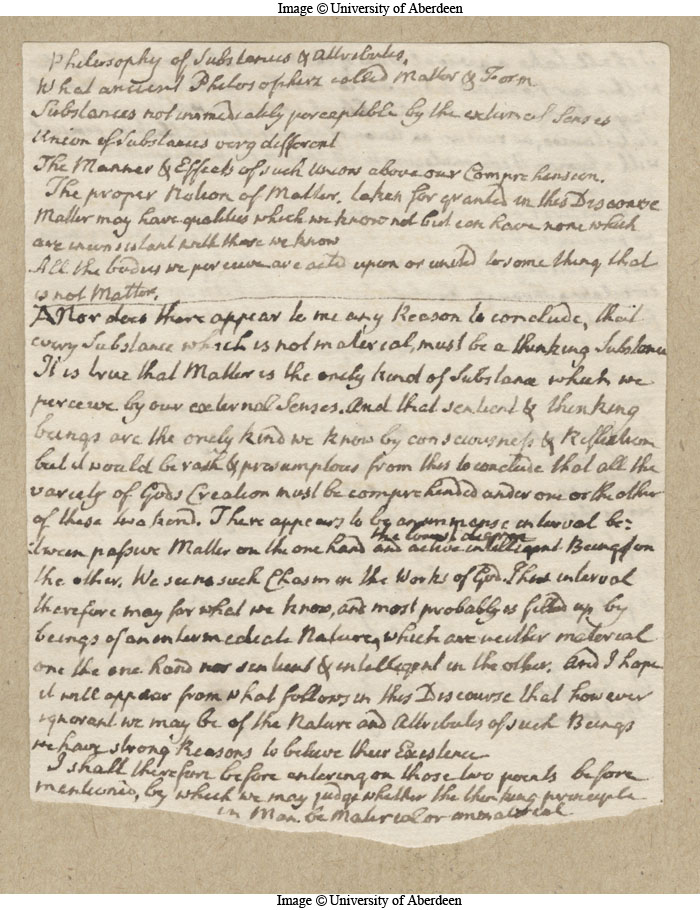 Image © University of Aberdeen
Philosophy of Substances & Attributes.
What ancient Philosophers called Matter & Form
Substances not immediately perceptible by the external Senses
Union of Substances very different
The Manner & Effects of such Union above our Comprehension.
The proper Notion of Matter. taken for granted in this Discourse
Matter may have qualities which we know not but can have none which
are inconsistant with those we know
All the bodies we perceive are acted upon or united to some thing that
is not Matter.
A Nor does there appear to me any Reason to conclude, that
every Substance which is not material, must be a thinking Substance
It is true that Matter is the onely kind of Substance which we
perceive by our external Senses. And that sentient & thinking
beings are the onely kind we know by consciousness & Reflection
but it would be rash & presumptous from this to conclude that all the
variety of Gods Creation must be comprehended under one or the other
of these two kind. There appears to be an immense interval be=
the lowest degree
tween passive Matter on the one hand and active intelligent Beings on
the other. We see no such Chasm in the Works of God. This interval
therefore may for what we know, and most probably is filled up by
beings of an intermediate Nature, which are neither material
one the one hand nor sentient & intelligent in the other. And I hope
it will appear from what follows in this Discourse that however
ignorant we may be of the Nature and Attributes of such Beings
we have strong Reasons to believe their Existence
I shall therefore before entering on those two points before
mentioned, by which we may judge whether the thinking principle
in Man. be Material or immaterial
Image © University of Aberdeen